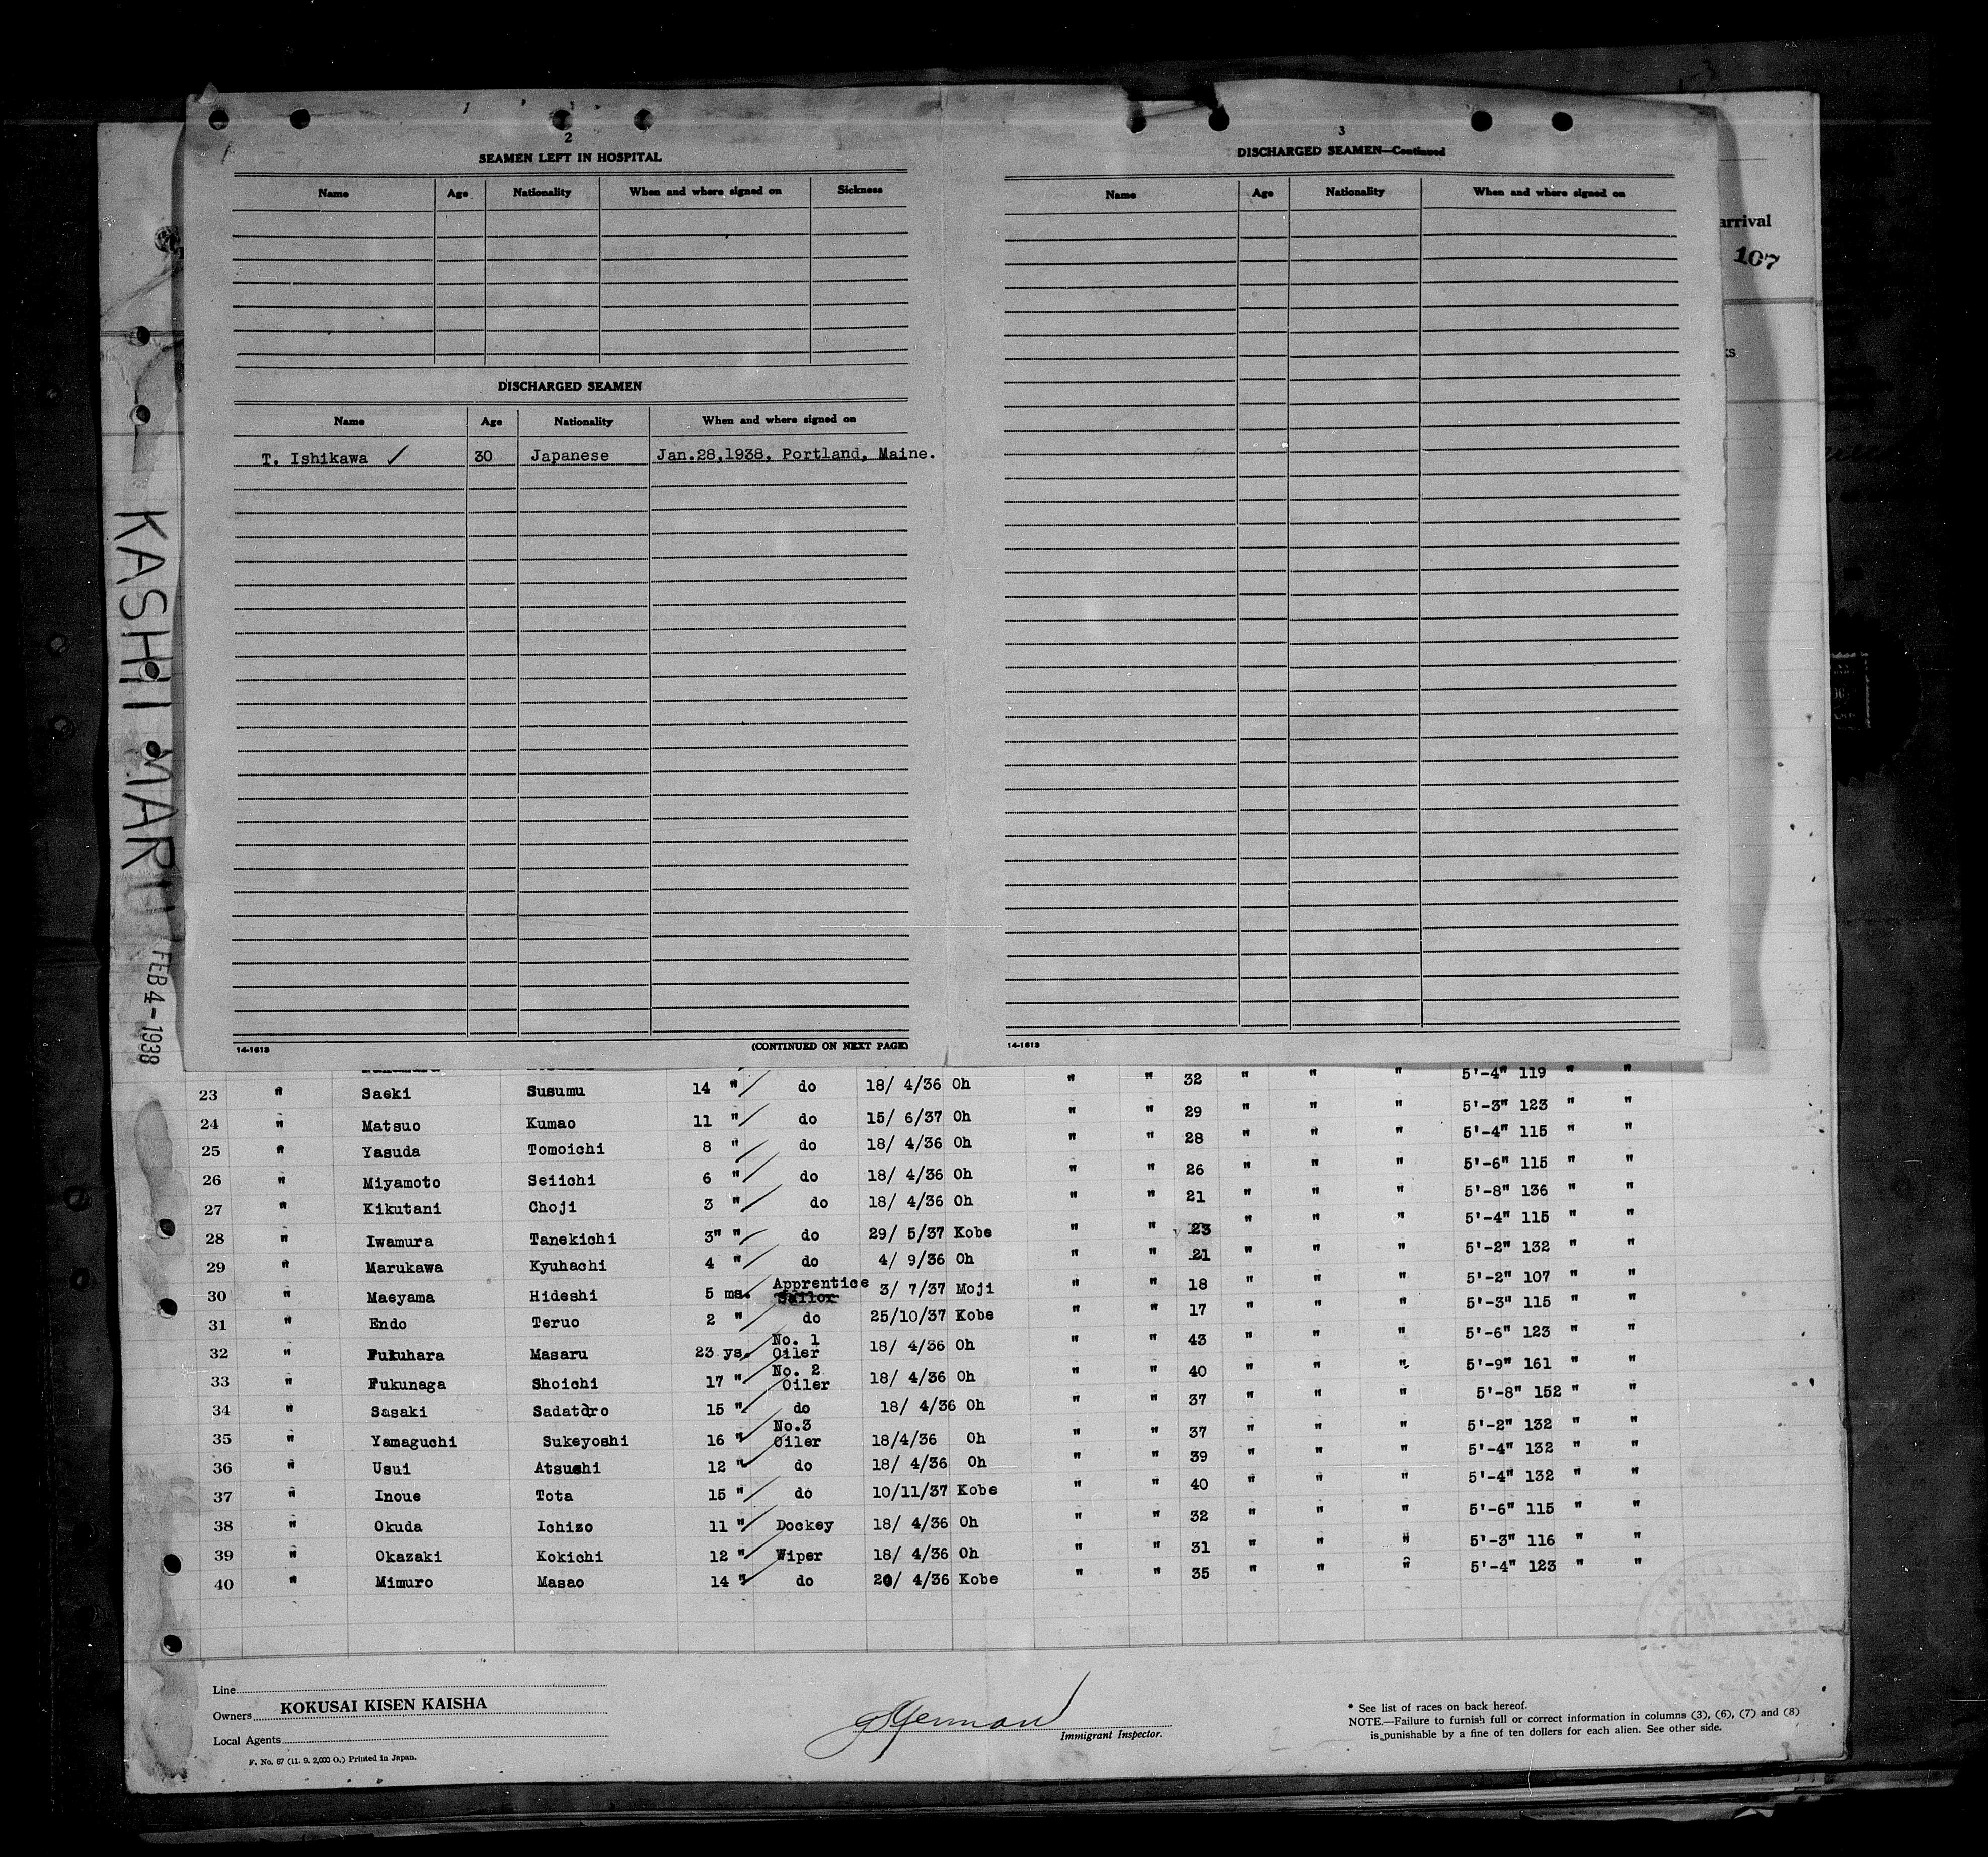 2
SEAMEN LEFT IN HOSPITAL
Name Age Nationality When and where signed on Sickness
DISCHARGED SEAMEN
Name Age Nationality When and where signed on
T. Ishikawa ✓ 30 Japanese Jan.28,1938, Portland, Maine.
14-1613 (CONTINUED ON NEXT PAGE)
3
DISCHARGED SEAMEN—Continued
Name Age Nationality When and where signed on
14-1613
arrival
107
KASHII MARU FEB 4-1938
23 " Saeki Susumu 14 " do 18/ 4/36 Oh " " 32 " " " 5'-4" 119 " "
24 " Matsuo Kumao 11 " do 15/ 6/37 Oh " " 29 " " " 5'-3" 123 " "
25 " Yasuda Tomoichi 8 " do 18/ 4/36 Oh " " 28 " " " 5'-4" 115 " "
26 " Miyamoto Seiichi 6 " do 18/ 4/36 Oh " " 26 " " " 5'-6" 115 " "
27 " Kikutani Choji 3 " do 18/ 4/36 Oh " " 21 " " " 5'-8" 136 " "
28 " Iwamura Tanekichi 3" " do 29/ 5/37 Kobe " " 23 " " " 5'-4" 115 " "
29 " Marukawa Kyuhachi 4 " do 4/ 9/36 Oh " " 21 " " " 5'-2" 132 " "
30 " Maeyama Hideshi 5 ms. Apprentice Sailor 3/ 7/37 Moji " " 18 " " " 5'-2" 107 " "
31 " Endo Teruo 2 " do 25/10/37 Kobe " " 17 " " " 5'-3" 115 " "
32 " Fukuhara Masaru 23 ys. No. 1 Oiler 18/ 4/36 Oh " " 43 " " " 5'-6" 123 " "
33 " Fukunaga Shoichi 17 " No. 2 Oiler 18/ 4/36 Oh " " 40 " " " 5'-9" 161 " "
34 " Sasaki Sadataro 15 " do 18/ 4/36 Oh " " 37 " " " 5'-8" 152 " "
35 " Yamaguchi Sukeyoshi 16 " No.3 Oiler 18/4/36 Oh " " 37 " " " 5'-2" 132 " "
36 " Usui Atsushi 12 " do 18/ 4/36 Oh " " 39 " " " 5'-4" 132 " "
37 " Inoue Tota 15 " do 10/11/37 Kobe " " 40 " " " 5'-4" 132 " "
38 " Okuda Ichizo 11 " Dockey 18/ 4/36 Oh " " 32 " " " 5'-6" 115 " "
39 " Okazaki Kokichi 12 " Wiper 18/ 4/36 Oh " " 31 " " " 5'-3" 116 " "
40 " Mimuro Masao 14 " do 20/ 4/36 Kobe " " 35 " " " 5'-4" 123 " "
Line
Owners KOKUSAI KISEN KAISHA
Local Agents
F. No. 67 (11. 9. 2,000 O.) Printed in Japan.
Immigrant Inspector.
* See list of races on back hereof.
NOTE.—Failure to furnish full or correct information in columns (3), (6), (7) and (8)
is punishable by a fine of ten dollars for each alien. See other side.